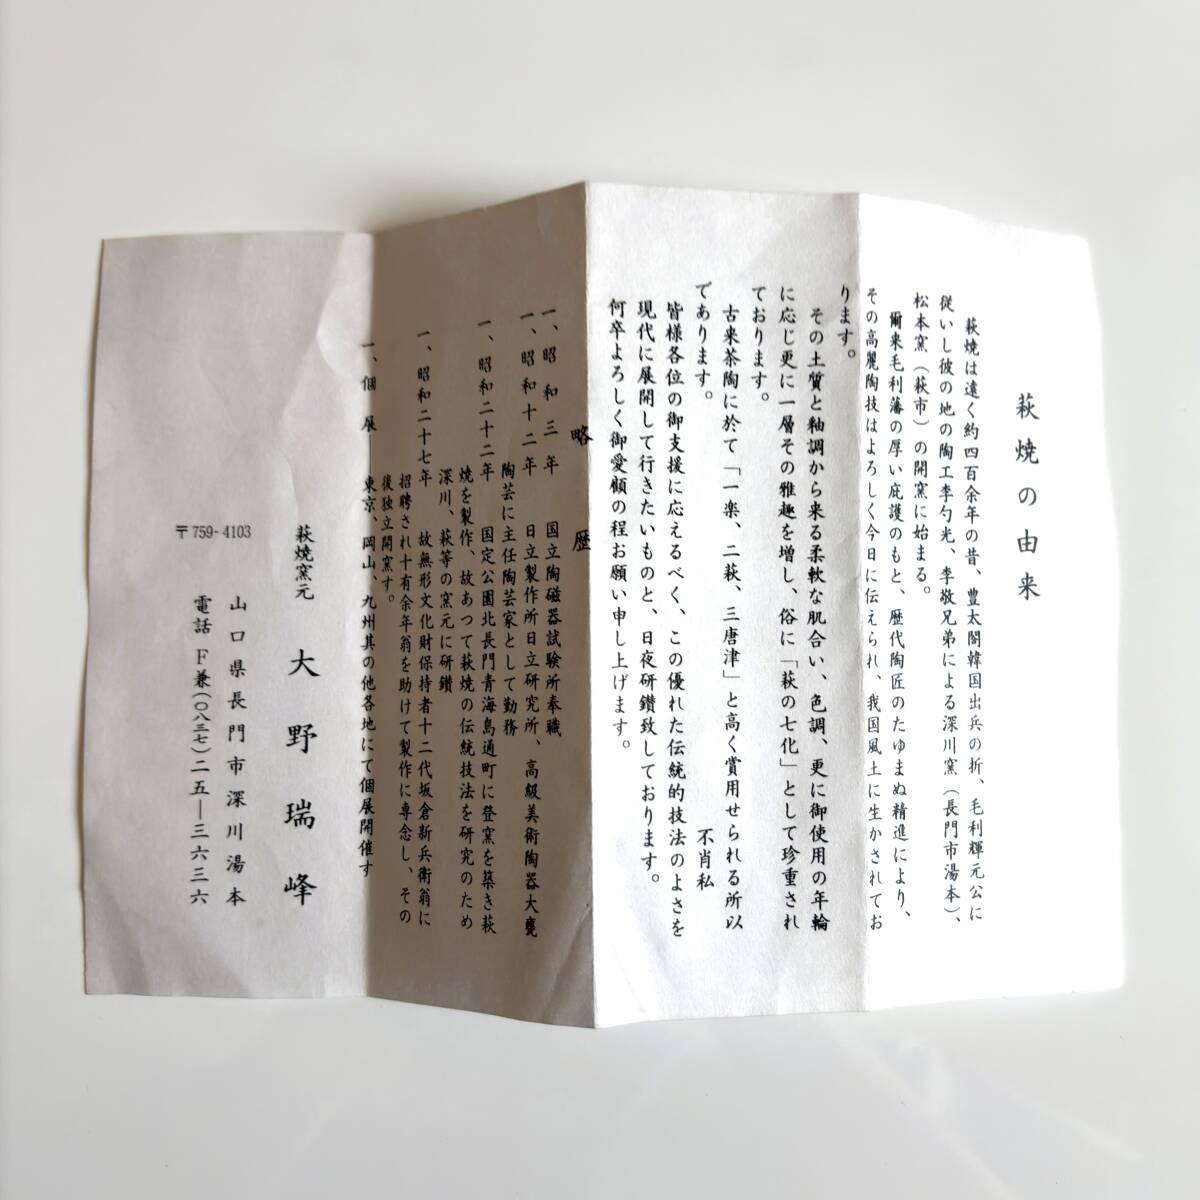 萩焼の由来
萩焼は遠く約四百余年の昔、豊太閤韓国出兵の折、毛利輝元公に
従いし彼の地の陶工李勺光、李敬兄弟による深川窯（長門市湯本）、
松本窯（萩市）の開窯に始まる。
爾来毛利藩の厚い庇護のもと、歴代陶匠のたゆまぬ精進により、
その高麗陶技はよろしく今日に伝えられ、我国風土に生かされてお
ります。
その土質と釉調から来る柔軟な肌合い、色調、更に御使用の年輪
に応じ更に一層その雅趣を増し、俗に「萩の七化」として珍重され
ております。
古来茶陶に於て「一楽、二萩、三唐津」と高く賞用せられる所以
であります。
不肖私
皆様各位の御支援に応えるべく、この優れた伝統的技法のよさを
現代に展開して行きたいものと、日夜研鑽致しております。
何卒よろしく御愛顧の程お願い申し上げます。
略歴
一、昭和三年 国立陶磁器試験所奉職
一、昭和十二年 日立製作所日立研究所、高級美術陶器大甕
陶芸に主任陶芸家として勤務
一、昭和二十二年 国定公園北長門青海島通町に登窯を築き萩
焼を製作、故あつて萩焼の伝統技法を研究のため
深川、萩等の窯元に研鑽
一、昭和二十七年 故無形文化財保持者十二代坂倉新兵衛翁に
招聘され十有余年翁を助けて製作に専念し、その
後独立開窯す。
一、個展―東京、岡山、九州其の他各地にて個展開催す
萩焼窯元 大野瑞峰
〒759-4103
山口県長門市深川湯本
電話 F兼(〇八三七)二五―三六三六